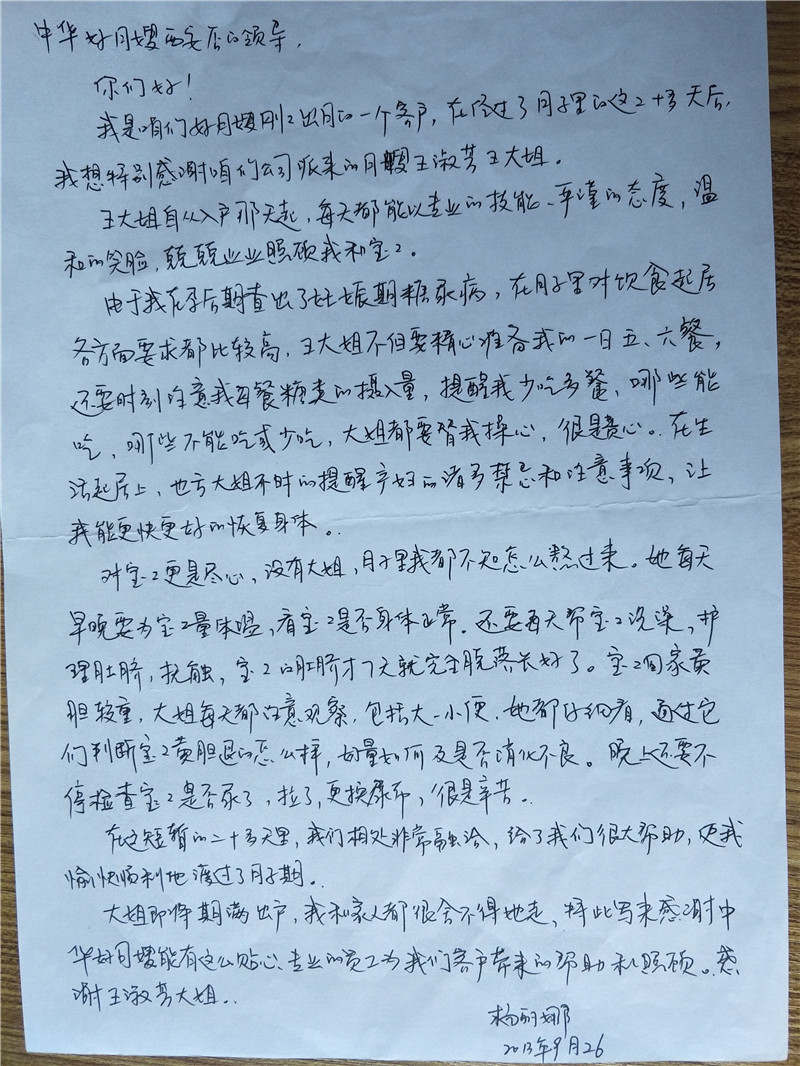 中华好月嫂西安店的领导,
你们好!
我是咱们好月嫂刚刚出月的一个客户,在经过了月子里的这二十多天后,
我想特别感谢咱们公司派来的月嫂王淑芳王大姐。
王大姐自从入户那天起,每天都能以专业的技能、严谨的态度,温
和的笑脸,兢兢业业照顾我和宝宝。
由于我在孕后期查出了妊娠期糖尿病,在月子里对饮食起居
各方面要求都比较高,王大姐不但要精心准备我的一日五、六餐,
还要时刻注意我每餐糖类的摄入量,提醒我少吃多餐,哪些能
吃,哪些不能吃或少吃,大姐都要替我操心,很是费心。在生
活起居上,也亏大姐不时的提醒产妇的诸多禁忌和注意事项,让
我能更快更好的恢复身体。
对宝宝更是尽心,没有大姐,月子里我都不知怎么熬过来。她每天
早晚要为宝宝量体温,看宝宝是否身体正常。还要每天帮宝宝洗澡,护
理肚脐,抚触,宝宝的肚脐才7天就完全脱落长好了。宝宝回家黄
胆较重,大姐每天都注意观察,包括大小便,她都仔细看,通过它
们判断宝宝黄胆退的怎么样,奶量如何及是否消化不良。晚上还要不
停检查宝宝是否尿了,拉了,更换尿布,很是辛苦。
在这短暂的二十多天里,我们相处非常融洽,给了我们很大帮助,使我
愉快顺利地渡过了月子期。
大姐即将期满出户,我和家人都很舍不得她走,特此写来感谢中
华好月嫂能有这么贴心、专业的员工为我们客户带来的帮助和照顾。感
谢王淑芳大姐。
杨丽娜
2013年9月26